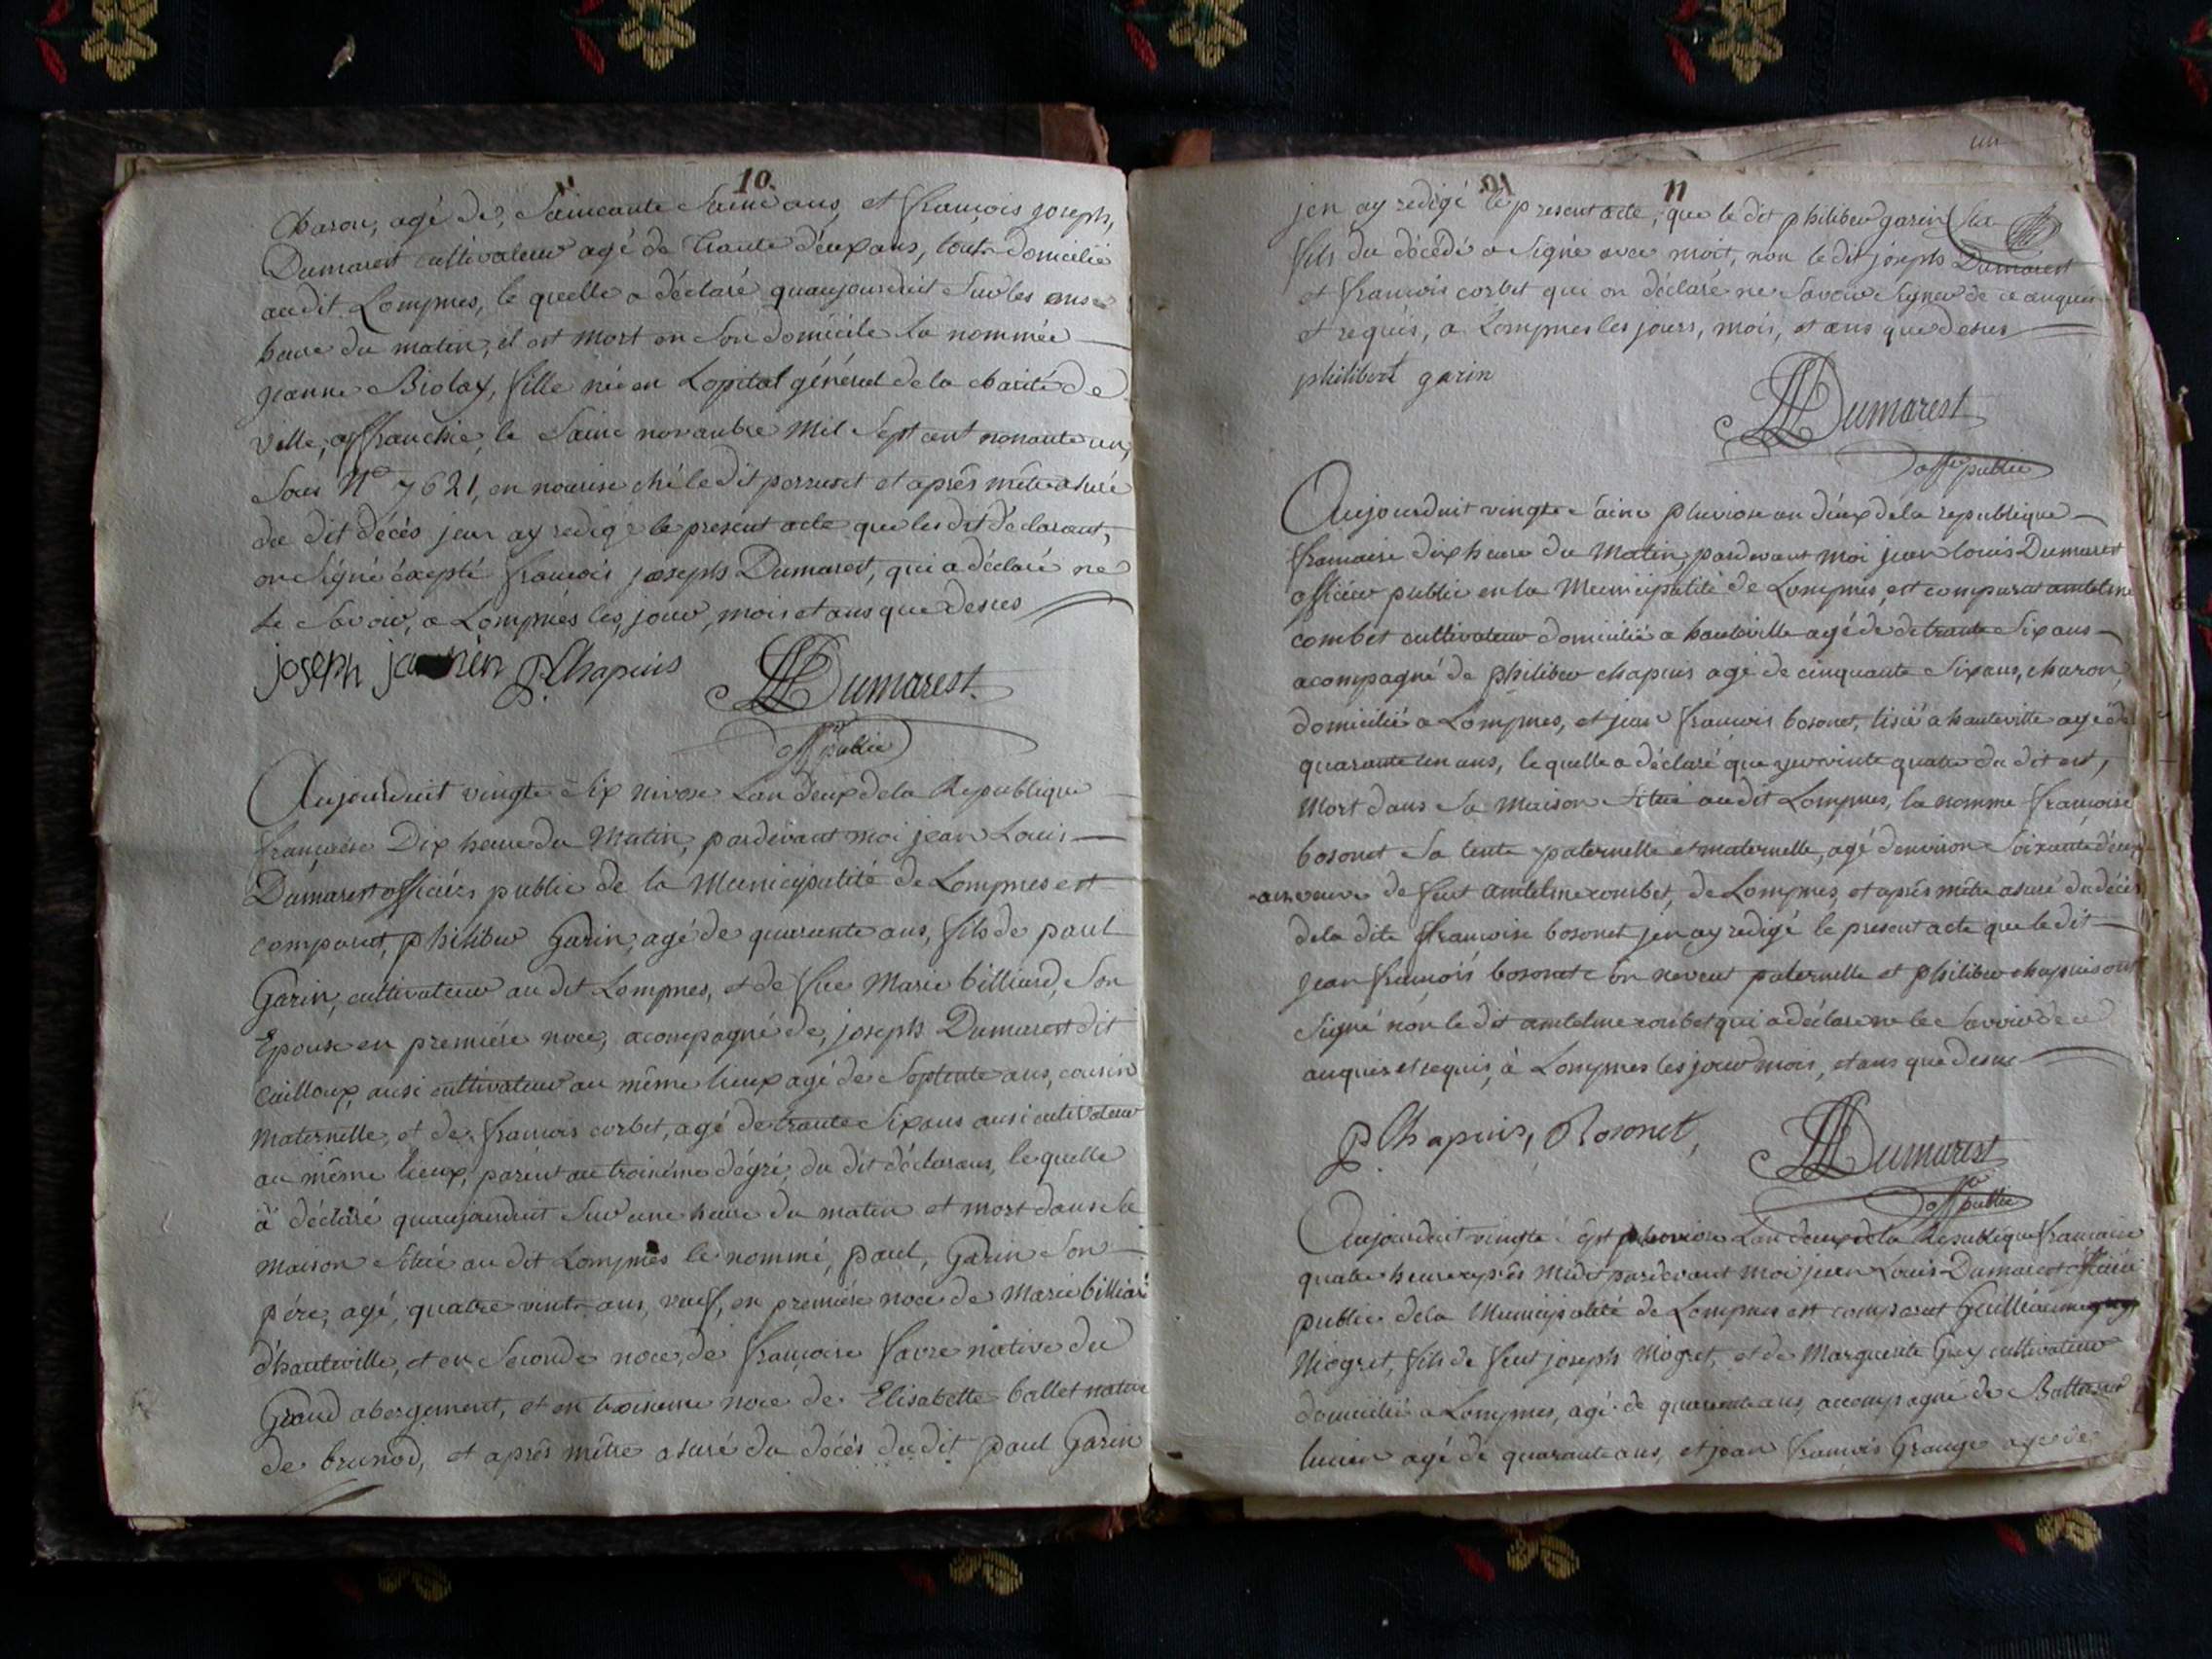 10.
Charon, agé de, Saincante Saine ans, et françois joseph,
Dumarest cultivateur agé de trante deux ans, tout domicilié
audit Lompnes, le quelle a déclaré quaujourduit Sur les onse
heure du matin, il est mort en Son domicile la nommée
jeanne Biolay, fille née en Lopital général de la charité de
ville, affranchie, le Saine novanbre Mil Sept cent nonante un,
Sous N° 7621, en nourise ché le dit perruret et après mêtre asuré
du dit décès jean ay redigé le present acte que les dit déclarant,
on Signé éxcepté françois joseph Dumarest, qui a déclaré ne
le Savoir, a Lompnés les, jour, mois et ans que desus
joseph P. Chapuis JLDumarest
off. public
Aujourduit vingte Six nivose Lan deux dela Republique
françaiese Dix heure du Matin, pardevant moi jean Louis
Dumarest officiérs public de la Municipalité de Lompnes est
comparut, philiber Garin, agé de quarante ans, fils de paul
Garin, cultivateur au dit Lompnes, et de fue Marie billiard, Son
Epouse en premiére noce, acompagné de, joseph Dumarest dit
Cailloux, ausi cultivateur au même lieux agé de Septente ans, cousin
Maternelle, et de, françois corbet, agé de trante Six ans ausi cultivateur
au même lieux, parént au troisiéme dégré, du dit déclarans, le quelle
à déclaré quaujourduit Sur une heure du matin et mort dans la
maison Situé au dit Lompnes le nommé, paul, Garin Son
pére, agé, quatre vint ans, veuf, en premiére noce de Marie billiard
d'hauteville, et en Seconde noce, de françoise favre native du
Grand abergement, et en troisieme noce de Elisabette ballet native
de brenod, et après mêtre asuré du décés du dit paul Garin
11
jen ay redigé le present acte, que le dit philiber garin
fils du décédé a Signé avec moit, non le dit joseph Dumarest
et françois corbet qui on déclaré ne Savoir Signer de ce anquis
et requis, a Lompnes les jours, mois, et ans que desus
philibert garin
JLDumarest
off. public
Aujourduit vingte Saine pluviose an deux dela republique
francaise dix heure du Matin, pardevant moi jean louis Dumarest
officier public en la Municipalité de Lompnes est comparut antelme
combet cultivateur domicilié a hauteville agé de detrante Six ans
acompagné de philiber chapuis agé de cinquante Six ans, charon,
domicilié a Lompnes, et jean françois bosonet, tisié a hauteville agé de
quarante un ans, le quelle a déclaré que yer vinte quatre du dit est,
Mort dans Sa Maison Situé audit Lompnes, la nomme françoise
bosonet Sa tente paternelle et maternelle, agé denviron Soixante deux
ans veuve de feut antelme combet, de Lompnes, et après mêtre asuré du décés
dela dite françoise bosonet jen ay redigé le present acte que le dit
jean françois bosonet Son neveut paternelle et philiber chapuis ont
Signé non le dit antelme conbet qui a déclaré ne le Savoir de ce
anquis et requis, à Lompnes les jour mois, et ans que desus
P. Chapuis, Bosonet, JLDumarest
off. public
Aujourduit vingte Sept pluviose Lan deux dela Republique francaise
quatre heure après Midit pardevant moi jean Louis Dumarest officié
public dela Municipalité de Lompnes est comparut Guilliaume
Miogret, fils de feut joseph Miogret, et de Marguerite Guy cultivateur
domicilié a Lompnes, agé de quarante ans, accompagné de Baltasar
lucien agé de quarante ans, et jean françois Grange agé de